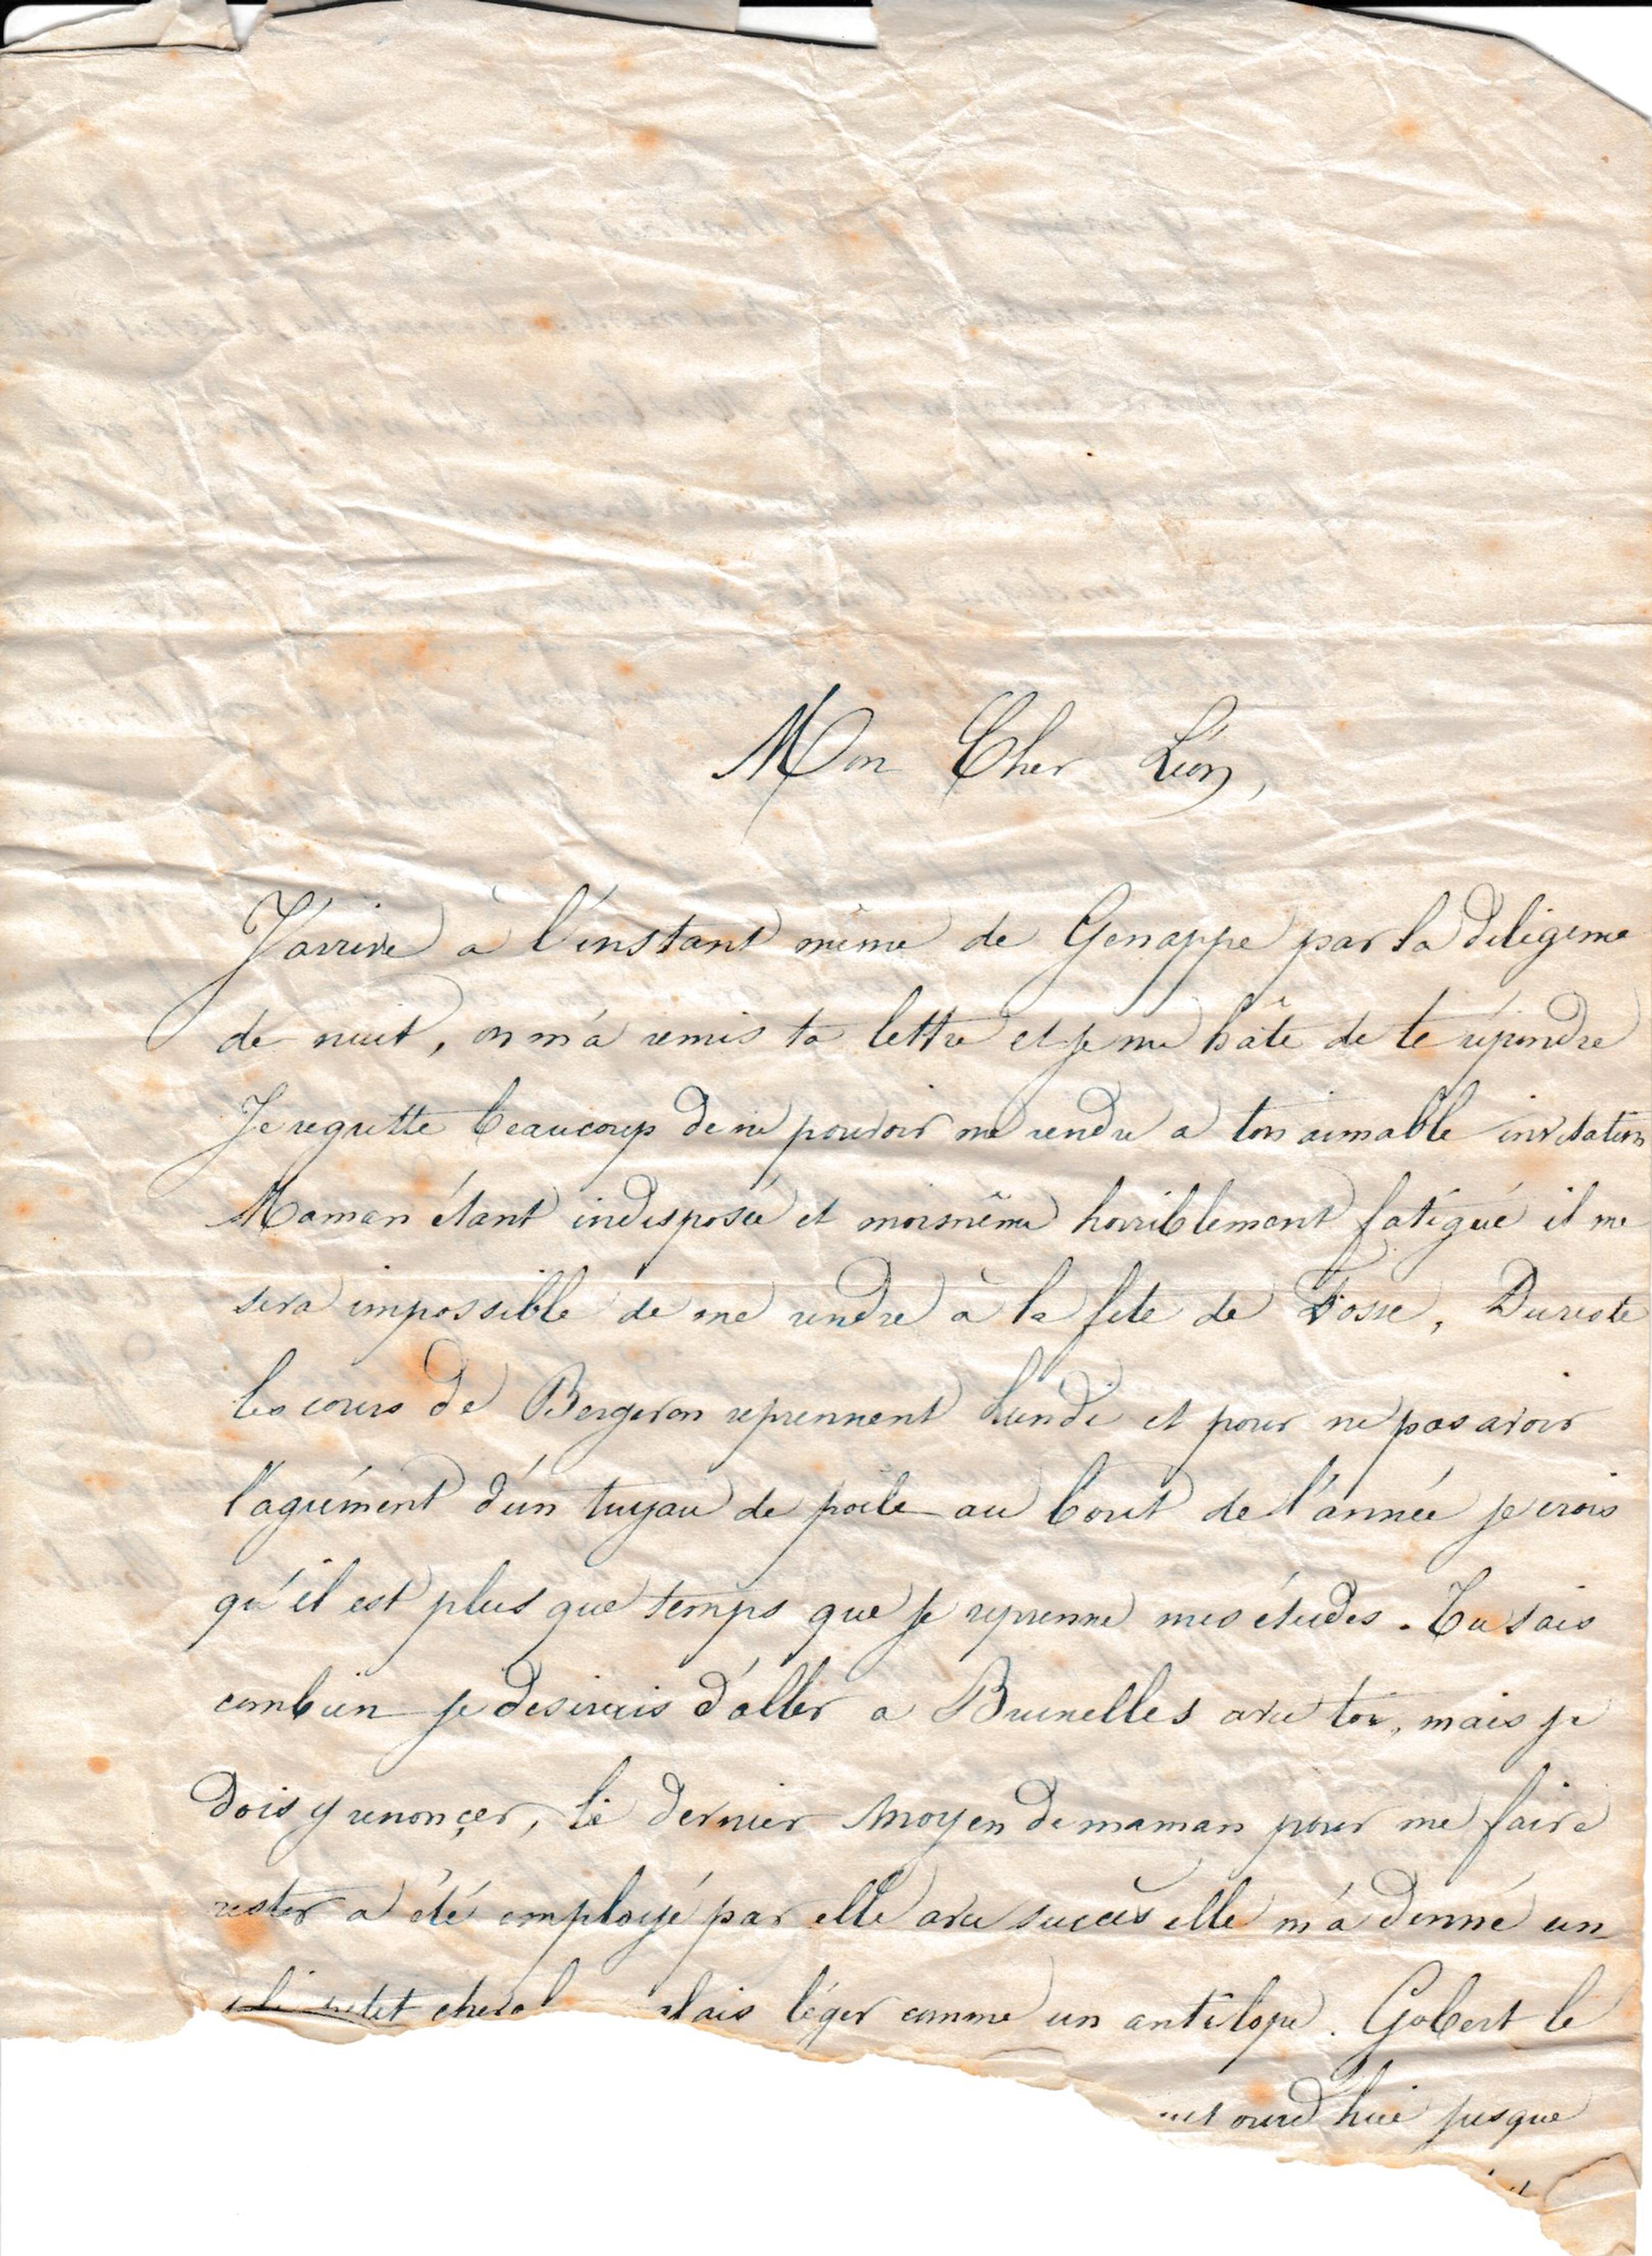 Mon Cher Léon,
J'arrive à l'instant même de Genappe par la diligence
de nuit, on m'a remis ta lettre et je me hâte de te répondre
Je regrette beaucoup de ne pouvoir me rendre a ton aimable invitation
Maman étant indisposée et moi même horriblement fatigué il me
sera impossible de me rendre à la fete de Fosse, Du reste
les cours de Bergeron reprennent lundi et pour ne pas avoir
l'agrément d'un tuyau de poile au bout de l'année je crois
qu'il est plus que temps que je reprenne mes études. Tu sais
combien je desirais d'aller a Bruxelles avec toi, mais je
dois y renonçer, le dernier moyen de maman pour me faire
rester a été employé par elle avec succès elle m'a donné un
petit cheval léger comme un antilope. Gobert le
jusque